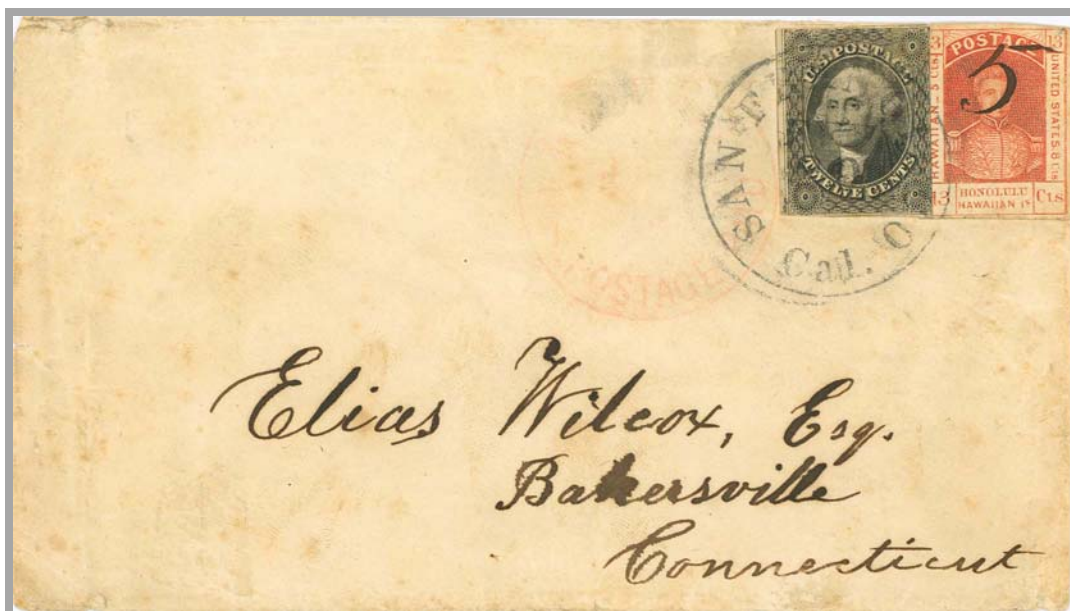 U.S. POSTAGE
TWELVE CENTS
13 POSTAGE 13
HAWAIIAN 5 Cts
5
UNITED STATES 8 Cts
13 HONOLULU Cts
HAWAIIAN Is
SAN
Cal.
Elias Wilcox, Esq.
Bakersville
Connecticut